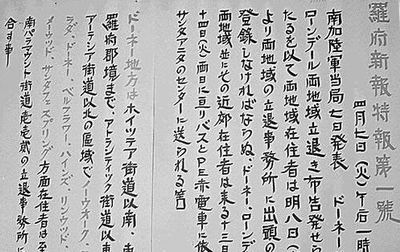 羅府新報特報第一號
四月七日(火)午后一時
南加陸軍当局七日発表 ドーネー
ローンデール両地域立退き布告発せら
たるを以て両地域在住者は明八日(
より両地域の立退事務所に出頭の
登録しなければならぬ、ドーネー、ローンデ
両地域並にその近郊在住者は来る十三日
十四日(火)両日に亘りバスとPE赤電車に依
サンタアニタのセンターに送られる筈
ドーネー地方はホイッテア街道以南、東
羅府郡境まで、アトランテック街道以東
アーテシア街道以北の区域でノーウオーク、
ラダ、ドーネー、ベルフラワー、ハインズ、リンウッド、
メーウッド、サンタフェスプリング方面在住者は至
南パラマウント街道壱壱弐の立退事務
合す事